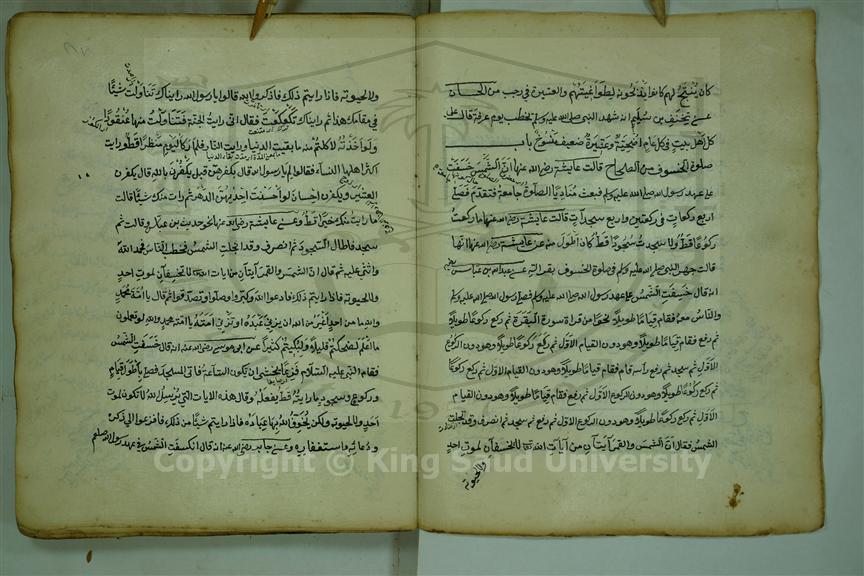 كان يُنْتَجُ لهم كانوا يذبحونه لطواغيتهم والعتيرة في رجب من الحسان
عن مخنف بن سليم انه شهد النبي صلى الله عليه وسلم يخطب يوم عرفة قال على
كل اهل بيت في كل عام اضحية وعتيرة ضعيف منسوخ باب
صلوة الخسوف من الصحاح قالت عايشة رضي الله عنها ان الشمس خسفت
على عهد رسول الله صلى الله عليه وسلم فبعث مناديا الصلوة جامعة فتقدم فصلى
اربع ركعات في ركعتين واربع سجدات قالت عايشة رضي الله عنها ما ركعت
ركوعا قط ولا سجدت سجودا قط كان اطول منه عن عايشة رضي الله عنها انها
قالت جهر النبي صلى الله عليه وسلم في صلوة الخسوف بقراءته عن عبد الله بن عباس
انه قال خسفت الشمس على عهد رسول الله صلى الله عليه وسلم فصلى رسول الله صلى الله عليه وسلم
والناس معه فقام قياما طويلا نحوا من قراءة سورة البقرة ثم ركع ركوعا طويلا
ثم رفع فقام قياما طويلا وهو دون القيام الاول ثم ركع ركوعا طويلا وهو دون الركوع
الاول ثم سجد ثم رفع فقام قياما طويلا وهو دون القيام الاول ثم ركع ركوعا
ثم ركع ركوعا طويلا وهو دون الركوع الاول ثم رفع فقام قياما طويلا وهو دون القيام
الاول ثم ركع ركوعا طويلا وهو دون الركوع الاول ثم رفع ثم سجد ثم انصرف وقد تجلت
الشمس فقال ان الشمس والقمر آيتان من آيات الله لا يخسفان لموت احد
ولا لحيوته
ولا لحيوته فاذا رايتم ذلك فاذكروا الله قالوا يا رسول الله رايناك تناولت شيئا
في مقامك هذا ثم رايناك تكعكعت فقال اني رايت الجنة فتناولت منها عنقودا
ولو اخذته لاكلتم منه ما بقيت الدنيا ورايت النار فلم ار كاليوم منظرا قط ورايت
اكثر اهلها النساء فقالوا لم يا رسول الله قال بكفرهن قيل يكفرن بالله قال يكفرن
العشير ويكفرن الاحسان لو احسنت الى احديهن الدهر ثم رات منك شيئا قالت
ما رايت منك خيرا قط وعن عايشة رضي الله عنها نحو حديث بن عباس وقالت ثم
سجد فاطال السجود ثم انصرف وقد انجلت الشمس فخطب الناس فحمد الله
واثنى عليه ثم قال ان الشمس والقمر آيتان من آيات الله لا يخسفان لموت احد
ولا لحيوته فاذا رايتم ذلك فادعوا الله وكبروا وصلوا وتصدقوا ثم قال يا امة محمد
والله ما من احد اغير من الله ان يزني عبده او تزني امته يا امة محمد والله لو تعلمون
ما اعلم لضحكتم قليلا ولبكيتم كثيرا عن ابي موسى رضي الله عنه انه قال خسفت الشمس
فقام النبي عليه السلام فزعا يخشى ان تكون الساعة فاتى المسجد فصلى باطول قيام
وركوع وسجود ما رايته قط يفعله وقال هذه الايات التي يرسل الله لا تكون لموت
احد ولا لحيوته ولكن يخوف الله بها عباده فاذا رايتم شيئا من ذلك فافزعوا الى ذكره
ودعائه واستغفاره وعن جابر رضي الله عنه انه قال انكسفت الشمس في عهد رسول الله صلعم
Copyright © King Saud University